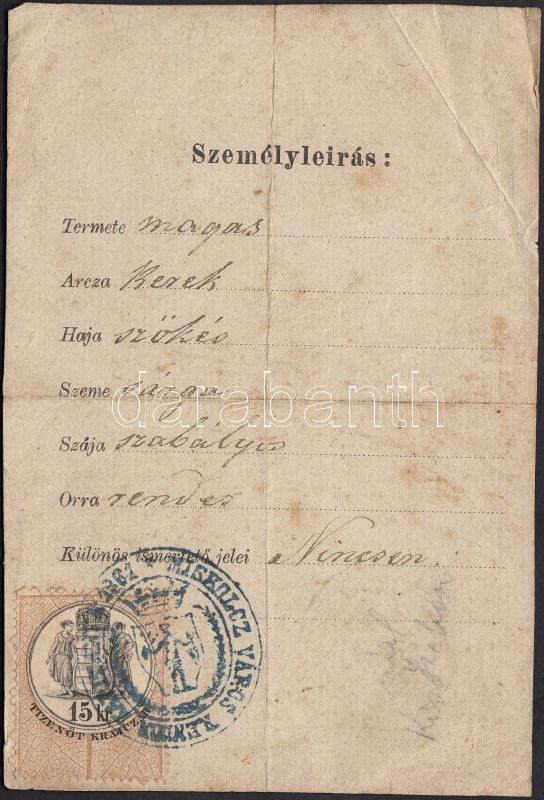 Személyleirás:
Termete magas
Arcza Kerek
Haja szőkés
Szeme sárga
darabanth
Szája szabályos
Orra rendes
Különös ismertető jelei Nincsen.
MISKOLCZ VÁROS
15 kr
TIZENÖT KRAJCZÁR